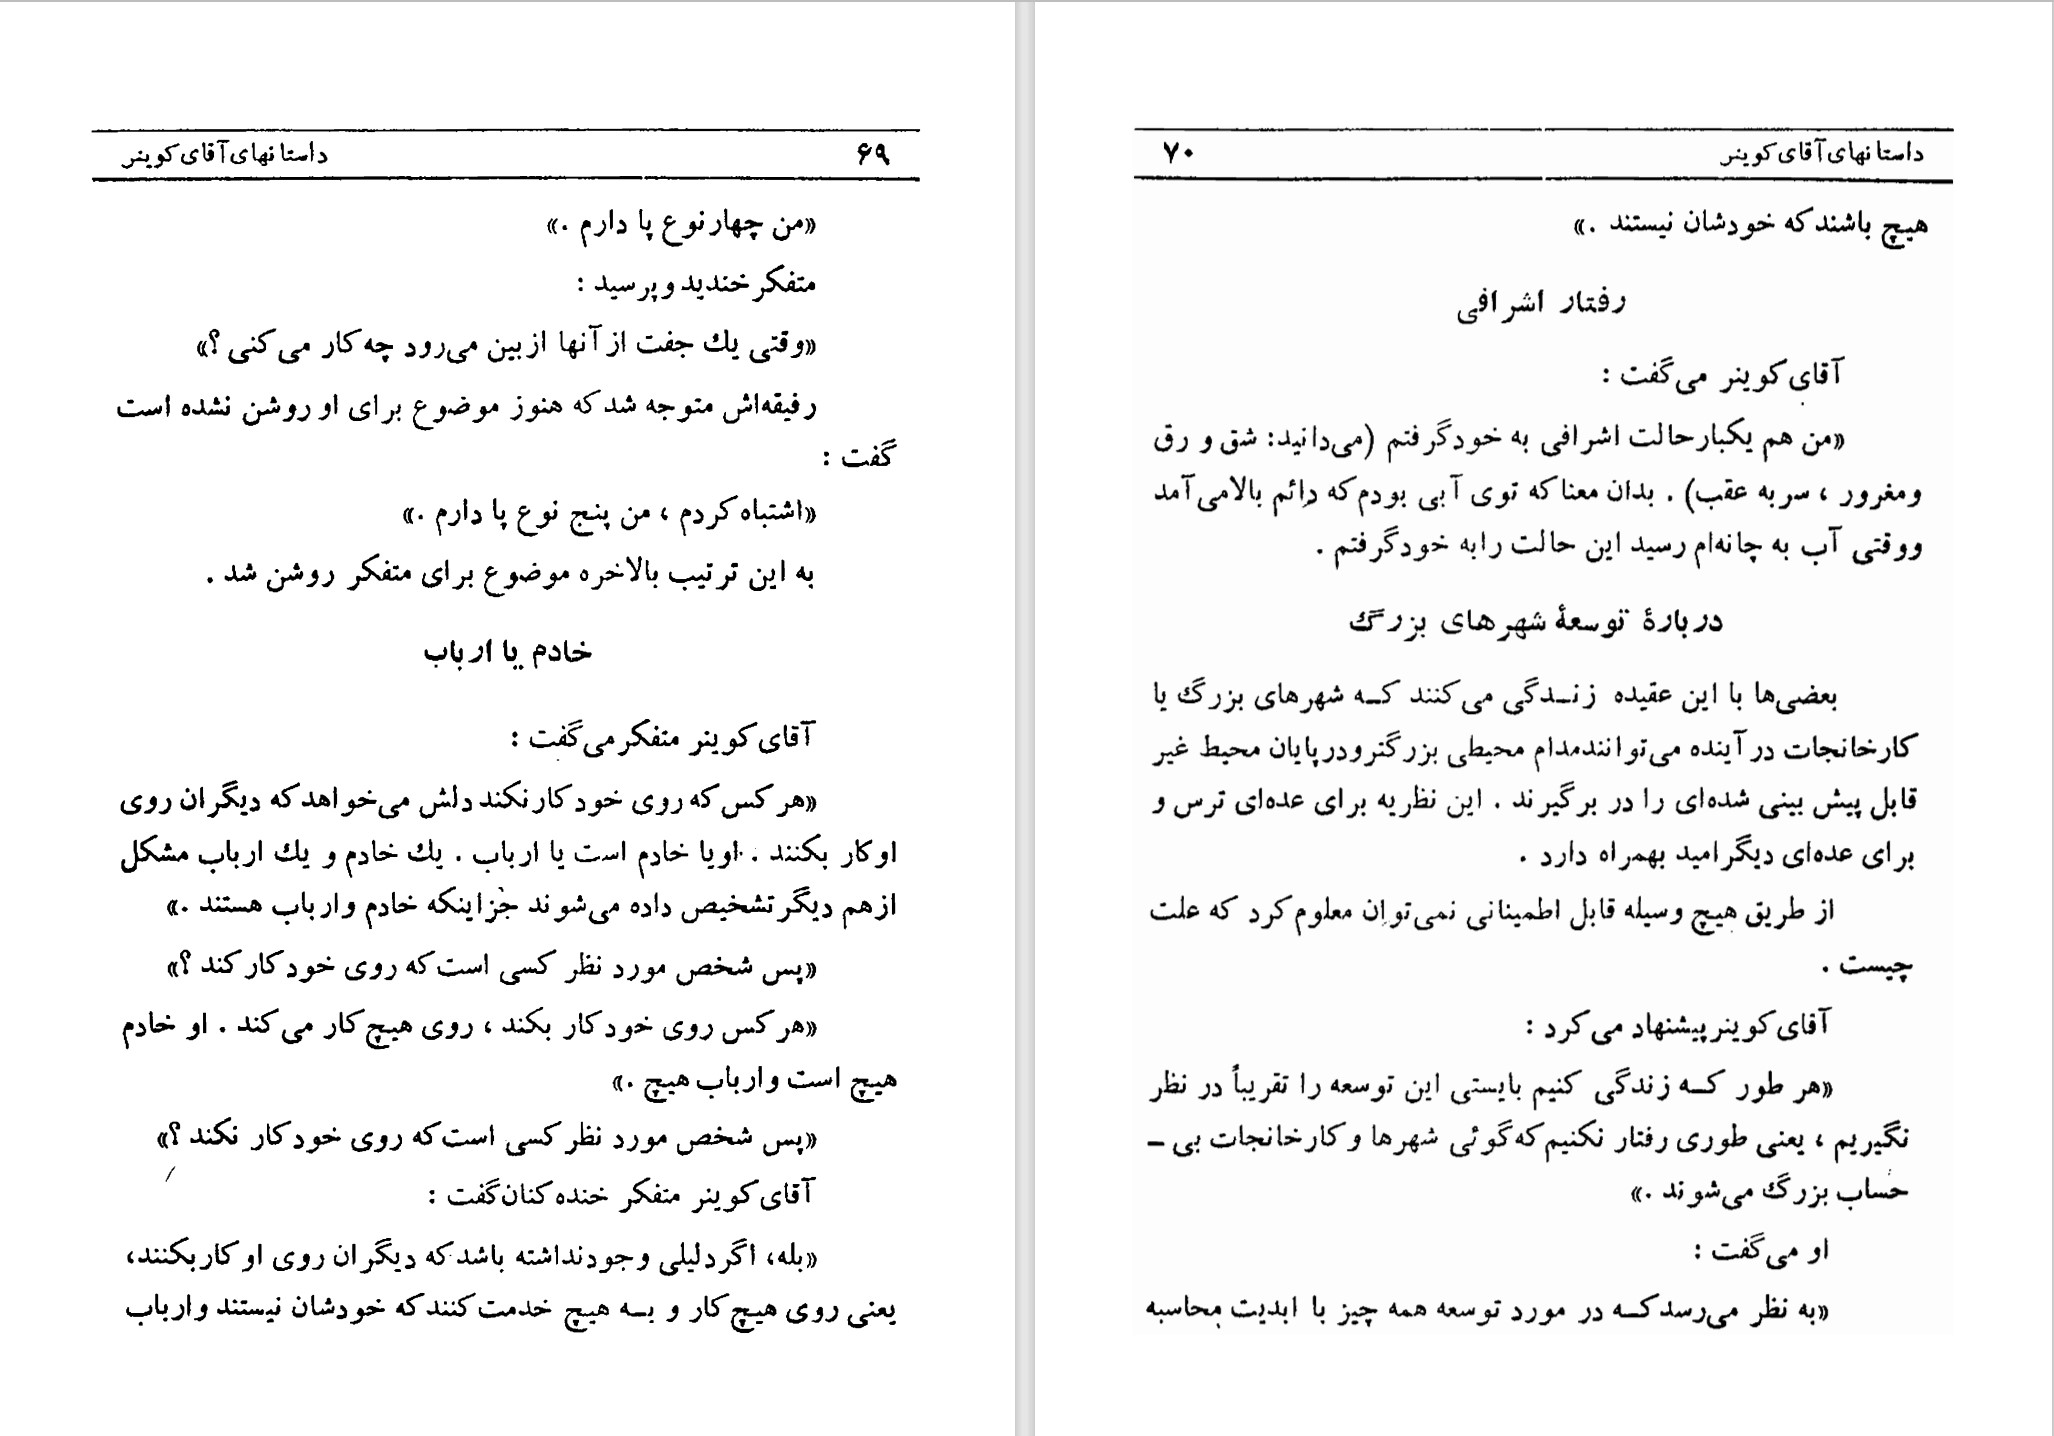 ۶۹ داستانهای آقای کوینر
«من چهار نوع پا دارم .»
متفکر خندید و پرسید :
«وقتی یك جفت از آنها از بین می‌رود چه کار می‌کنی ؟»
رفیقه‌اش متوجه شد که هنوز موضوع برای او روشن نشده است
گفت :
«اشتباه کردم ، من پنج نوع پا دارم .»
به این ترتیب بالاخره موضوع برای متفکر روشن شد .
خادم یا ارباب
آقای کوینر متفکر می‌گفت :
«هر کس که روی خود کار نکند دلش می‌خواهد که دیگران روی
او کار بکنند . او یا خادم است یا ارباب . یك خادم و یك ارباب مشکل
از هم دیگر تشخیص داده می‌شوند جز اینکه خادم و ارباب هستند .»
«پس شخص مورد نظر کسی است که روی خود کار کند ؟»
«هر کس روی خود کار بکند ، روی هیچ کار می‌کند . او خادم
هیچ است و ارباب هیچ .»
«پس شخص مورد نظر کسی است که روی خود کار نکند ؟»
آقای کوینر متفکر خنده کنان گفت :
«بله، اگر دلیلی وجود نداشته باشد که دیگران روی او کار بکنند،
یعنی روی هیچ کار و بـه هیچ خدمت کنند که خودشان نیستند و ارباب
داستانهای آقای کوینر ۷۰
هیچ باشند که خودشان نیستند .»
رفتار اشرافی
آقای کوینر می‌گفت :
«من هم یکبار حالت اشرافی به خود گرفتم (می‌دانید: شق و رق
و مغرور ، سر به عقب) . بدان معنا که توی آبی بودم که دائم بالا می‌آمد
و وقتی آب به چانه‌ام رسید این حالت را به خود گرفتم .
دربارهٔ توسعهٔ شهرهای بزرگ
بعضی‌ها با این عقیده زنـدگی می‌کنند کـه شهرهای بزرگ یا
کارخانجات در آینده می‌توانند مدام محیطی بزرگتر و در پایان محیط غیر
قابل پیش بینی شده‌ای را در بر گیرند . این نظریه برای عده‌ای ترس و
برای عده‌ای دیگر امید بهمراه دارد .
از طریق هیچ وسیله قابل اطمینانی نمی‌توان معلوم کرد که علت
چیست .
آقای کوینر پیشنهاد می‌کرد :
«هر طور کـه زندگی کنیم بایستی این توسعه را تقریباً در نظر
نگیریم ، یعنی طوری رفتار نکنیم که گوئی شهرها و کارخانجات بی ـ
حساب بزرگ می‌شوند .»
او می‌گفت :
«به نظر می‌رسد کـه در مورد توسعه همه چیز با ابدیت محاسبه